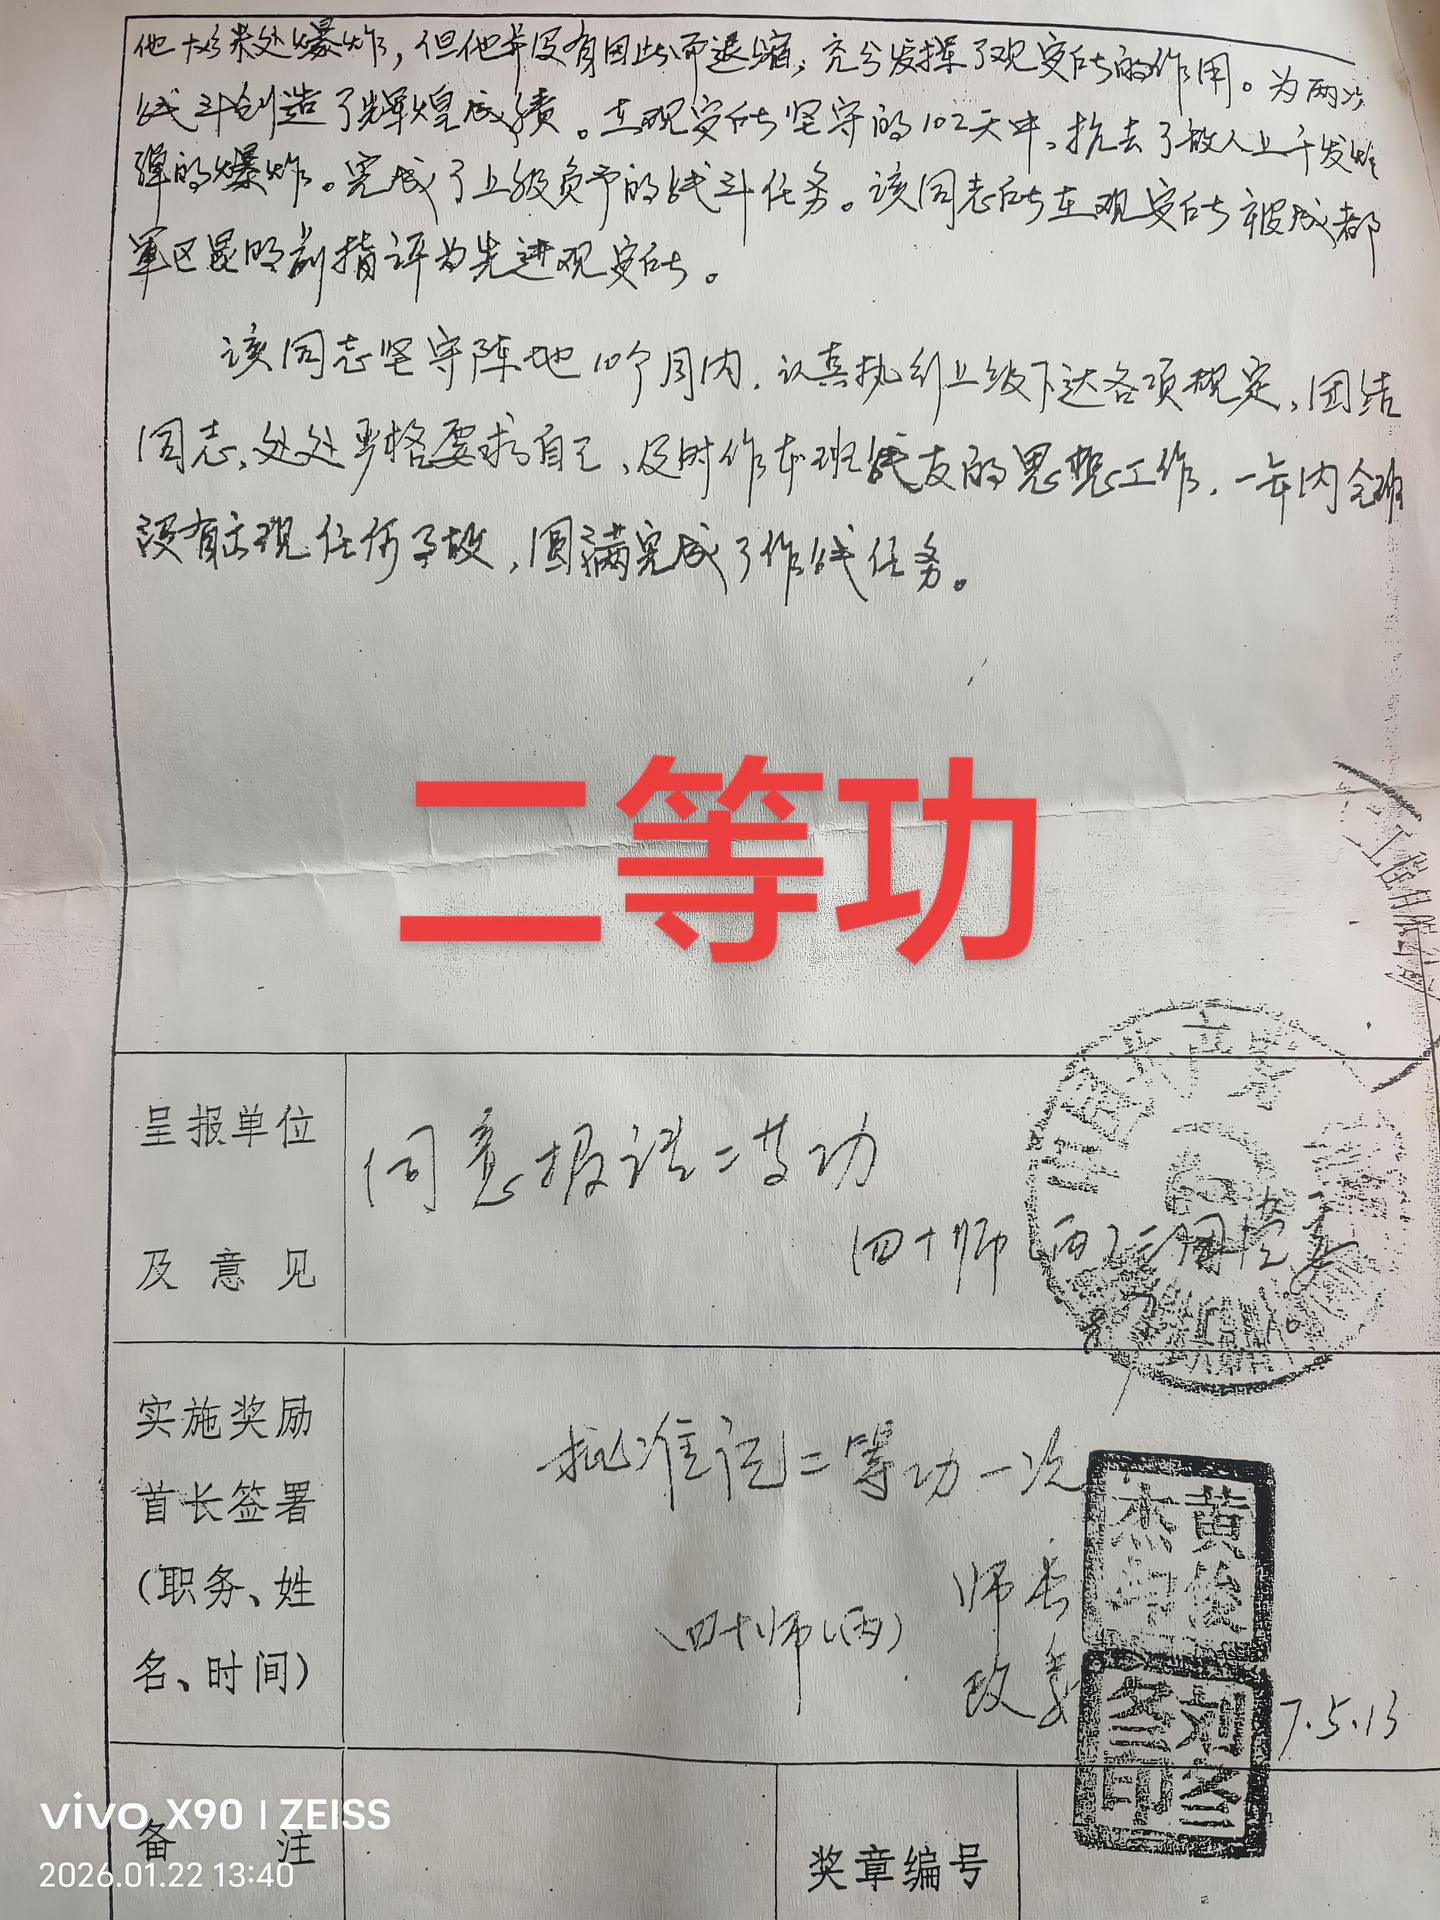 但他并没有因此而退缩，充分发挥了观察所的作用。为两次
战斗创造了辉煌成绩。在观察所坚守的102天中，抗击了敌人上千发炮
弹的爆炸。完成了上级负予的战斗任务。该同志所在观察所被成都
军区昆明前指评为先进观察所。
该同志坚守阵地10个月内，认真执行上级下达各项规定，团结
同志，处处严格要求自己，及时作本班战友的思想工作，一年内全班
没有出现任何事故，圆满完成了作战任务。
二等功
呈报单位
及意见
同意报请二等功
四十师(两)
实施奖励
首长签署
(职务、姓
名、时间)
批准记二等功一次
师长
四十师(两)
政委
黄俊杰印
7.5.13
备注
奖章编号
vivo X90 | ZEISS
2026.01.22 13:40